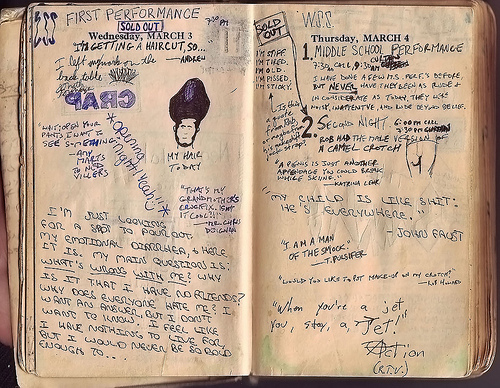 FIRST PERFORMANCE
7:30 PM
SOLD OUT
Wednesday, MARCH 3
I'M GETTING A HAIRCUT, SO...
I left my work on the
back table
- ANDREW
CRAP
"WAIT, OPEN YOUR
PANTS, I WANT TO
SEE SOMETHING"
- AMY
MARTS
TO NICO
VILLERS
*Opening
night! Yeah!*
MY HAIR
TODAY
"THAT'S MY
GRANDMOTHER'S
CRUCIFIX. ISN'T
IT COOL?!"
- MRS. CHRIS
I'M JUST LOOKING
FOR A SPOT TO POUR OUT
MY EMOTIONAL DIARRHEA, & HERE
IT IS. MY MAIN QUESTION IS:
WHAT'S WRONG WITH ME? WHY
IS IT THAT I HAVE NO FRIENDS?
WHY DOES EVERYONE HATE ME? I
WANT AN ANSWER, BUT I DON'T
WANT TO KNOW. I FEEL LIKE
I HAVE NOTHING TO LIVE FOR,
BUT I WOULD NEVER BE SO BOLD
ENOUGH TO...
SOLD
OUT
W.S.S.
Thursday, MARCH 4
I'M STIFF
I'M TIRED.
I'M OLD.
I'M PISSED.
I'M STICKY.
1. MIDDLE SCHOOL PERFORMANCE
7:30 CALL, 9:30 CURTAIN
I HAVE DONE A FEW M.S. PERF.'S BEFORE,
BUT NEVER HAVE THEY BEEN AS RUDE &
INCONSIDERATE AS TODAY. THEY WERE
NOISY, INATTENTIVE, AND RUDE BEYOND BELIEF.
2. SECOND NIGHT.
6:00 PM CALL
7:30 PM CURTAIN
ROB HAD THE MALE VERSION OF
A CAMEL CROTCH
"A PENIS IS JUST ANOTHER
APPENDAGE YOU COULD BREAK
WHILE SKIING."
- KATRINA LEHR
"MY CHILD IS LIKE SHIT:
HE'S EVERYWHERE."
- JOHN FAUST
"I AM A MAN
OF THE SMOCK"
- T. PULSIFER
"WOULD YOU LIKE TO PUT MAKEUP ON MY CROTCH?"
- ROB HOWARD
"When you're a jet
You, stay, a, Jet!"
Action
(R.T.V.)